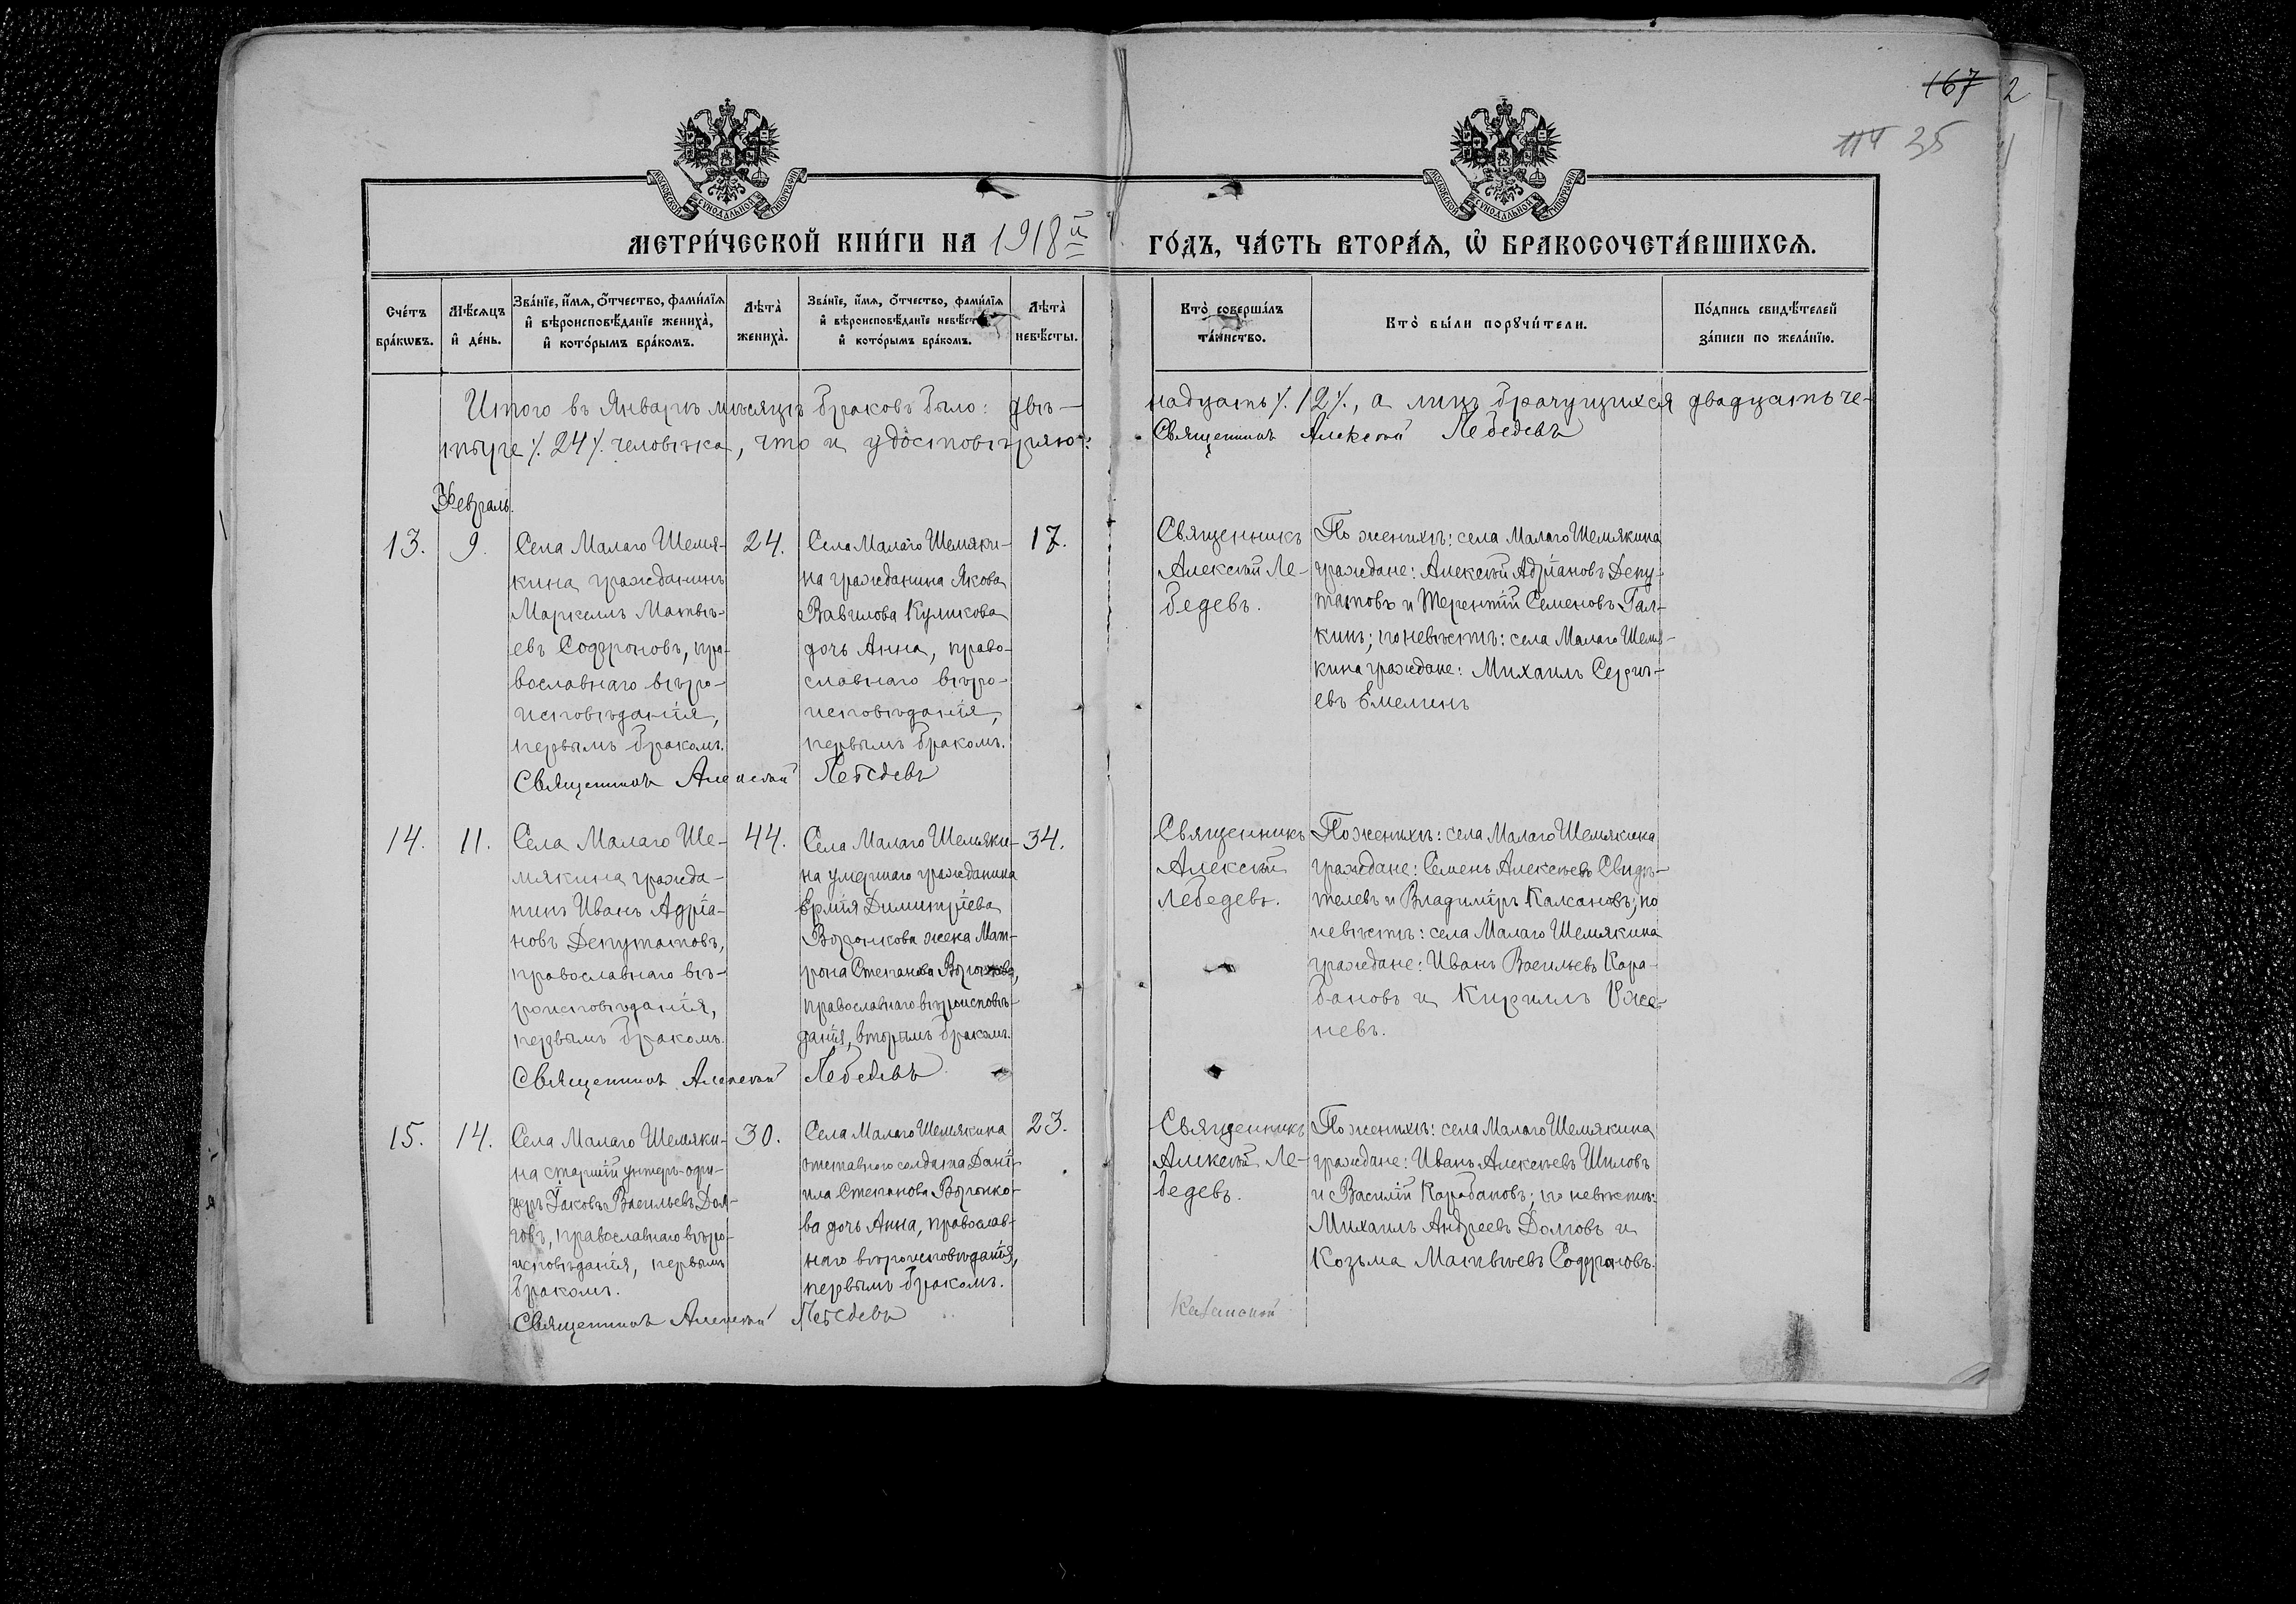 167 2
114 35
МЕТРИ́ЧЕСКОЙ КНИ́ГИ НА 1918й ГО́ДЪ, ЧА́СТЬ ВТОРА́Я, Ѡ БРАКОСОЧЕТА́ВШИХСЯ.
Сче́тъ бра́кѡвъ.
Мѣ́сяцъ и де́нь.
Зва́нїе, и́мя, о́тчество, фами́лїя и вѣроисповѣ́данїе жениха̀, и кото́рымъ бра́комъ.
Лѣта̀ жениха̀.
Зва́нїе, и́мя, о́тчество, фами́лїя и вѣроисповѣ́данїе невѣ́сты и кото́рымъ бра́комъ.
Лѣта̀ невѣ́сты.
Кто̀ соверша́лъ та́инство.
Кто̀ бы́ли порꙋчи́тели.
По́дпись свидѣ́телей за́писи по жела́нїю.
Итого въ Январѣ мѣсяцѣ браковъ было: двѣ-
надцать ⁒ 12 ⁒, а лицъ брачущихся двадцать че-
тыре ⁒ 24 ⁒ человѣка, что и удостовѣряю:
Священникъ Алексѣй Лебедевъ
Февраль.
13.
9.
Села Малаго Шемя-
кина гражданинъ
Маркеллъ Матвѣ-
евъ Софроновъ, пра-
вославнаго вѣро-
исповѣданія,
первымъ бракомъ.
24.
Села Малаго Шемяки-
на гражданина Якова
Вавилова Куликова
дочь Анна, право-
славнаго вѣро-
исповѣданія,
первымъ бракомъ.
17.
Священникъ Алексѣй Лебедевъ
Священникъ
Алексѣй Ле-
бедевъ.
По женихѣ: села Малаго Шемякина
граждане: Алексѣй Адріановъ Депу-
татовъ и Терентій Семеновъ Гал-
кинъ; по невѣстѣ: села Малаго Шемя-
кина граждане: Михаилъ Сергѣ-
евъ Емелинъ
14.
11.
Села Малаго Ше-
мякина гражда-
нинъ Иванъ Адріа-
новъ Депутатовъ,
православнаго вѣ-
роисповѣданія,
первымъ бракомъ.
44.
Села Малаго Шемяки-
на умершаго гражданина
Ермія Димитріева
Воронкова жена Мат-
рона Степанова Воронкова,
православнаго вѣроисповѣ-
данія, вторымъ бракомъ.
34.
Священникъ Алексѣй Лебедевъ
Священникъ
Алексѣй
Лебедевъ.
По женихѣ: села Малаго Шемякина
граждане: Семенъ Алексѣевъ Свидѣ-
телевъ и Владиміръ Калсановъ; по
невѣстѣ: села Малаго Шемякина
граждане: Иванъ Васильевъ Кара-
бановъ и Кириллъ
невъ.
15.
14.
Села Малаго Шемяки-
на старшій унтеръ-офи-
церъ Іаковъ Васильевъ Дол-
говъ, православнаго вѣро-
исповѣданія, первымъ
бракомъ.
30.
Села Малаго Шемякина
отставного солдата Дані-
ила Степанова Воронко-
ва дочь Анна, православ-
наго вѣроисповѣданія,
первымъ бракомъ.
23.
Священникъ Алексѣй Лебедевъ
Священникъ
Алексѣй Ле-
бедевъ.
По женихѣ: села Малаго Шемякина
граждане: Иванъ Алексѣевъ Шиловъ
и Василій Карабановъ; по невѣстѣ:
Михаилъ Андреевъ Долговъ и
Козьма Матвѣевъ Софроновъ.
Казанской